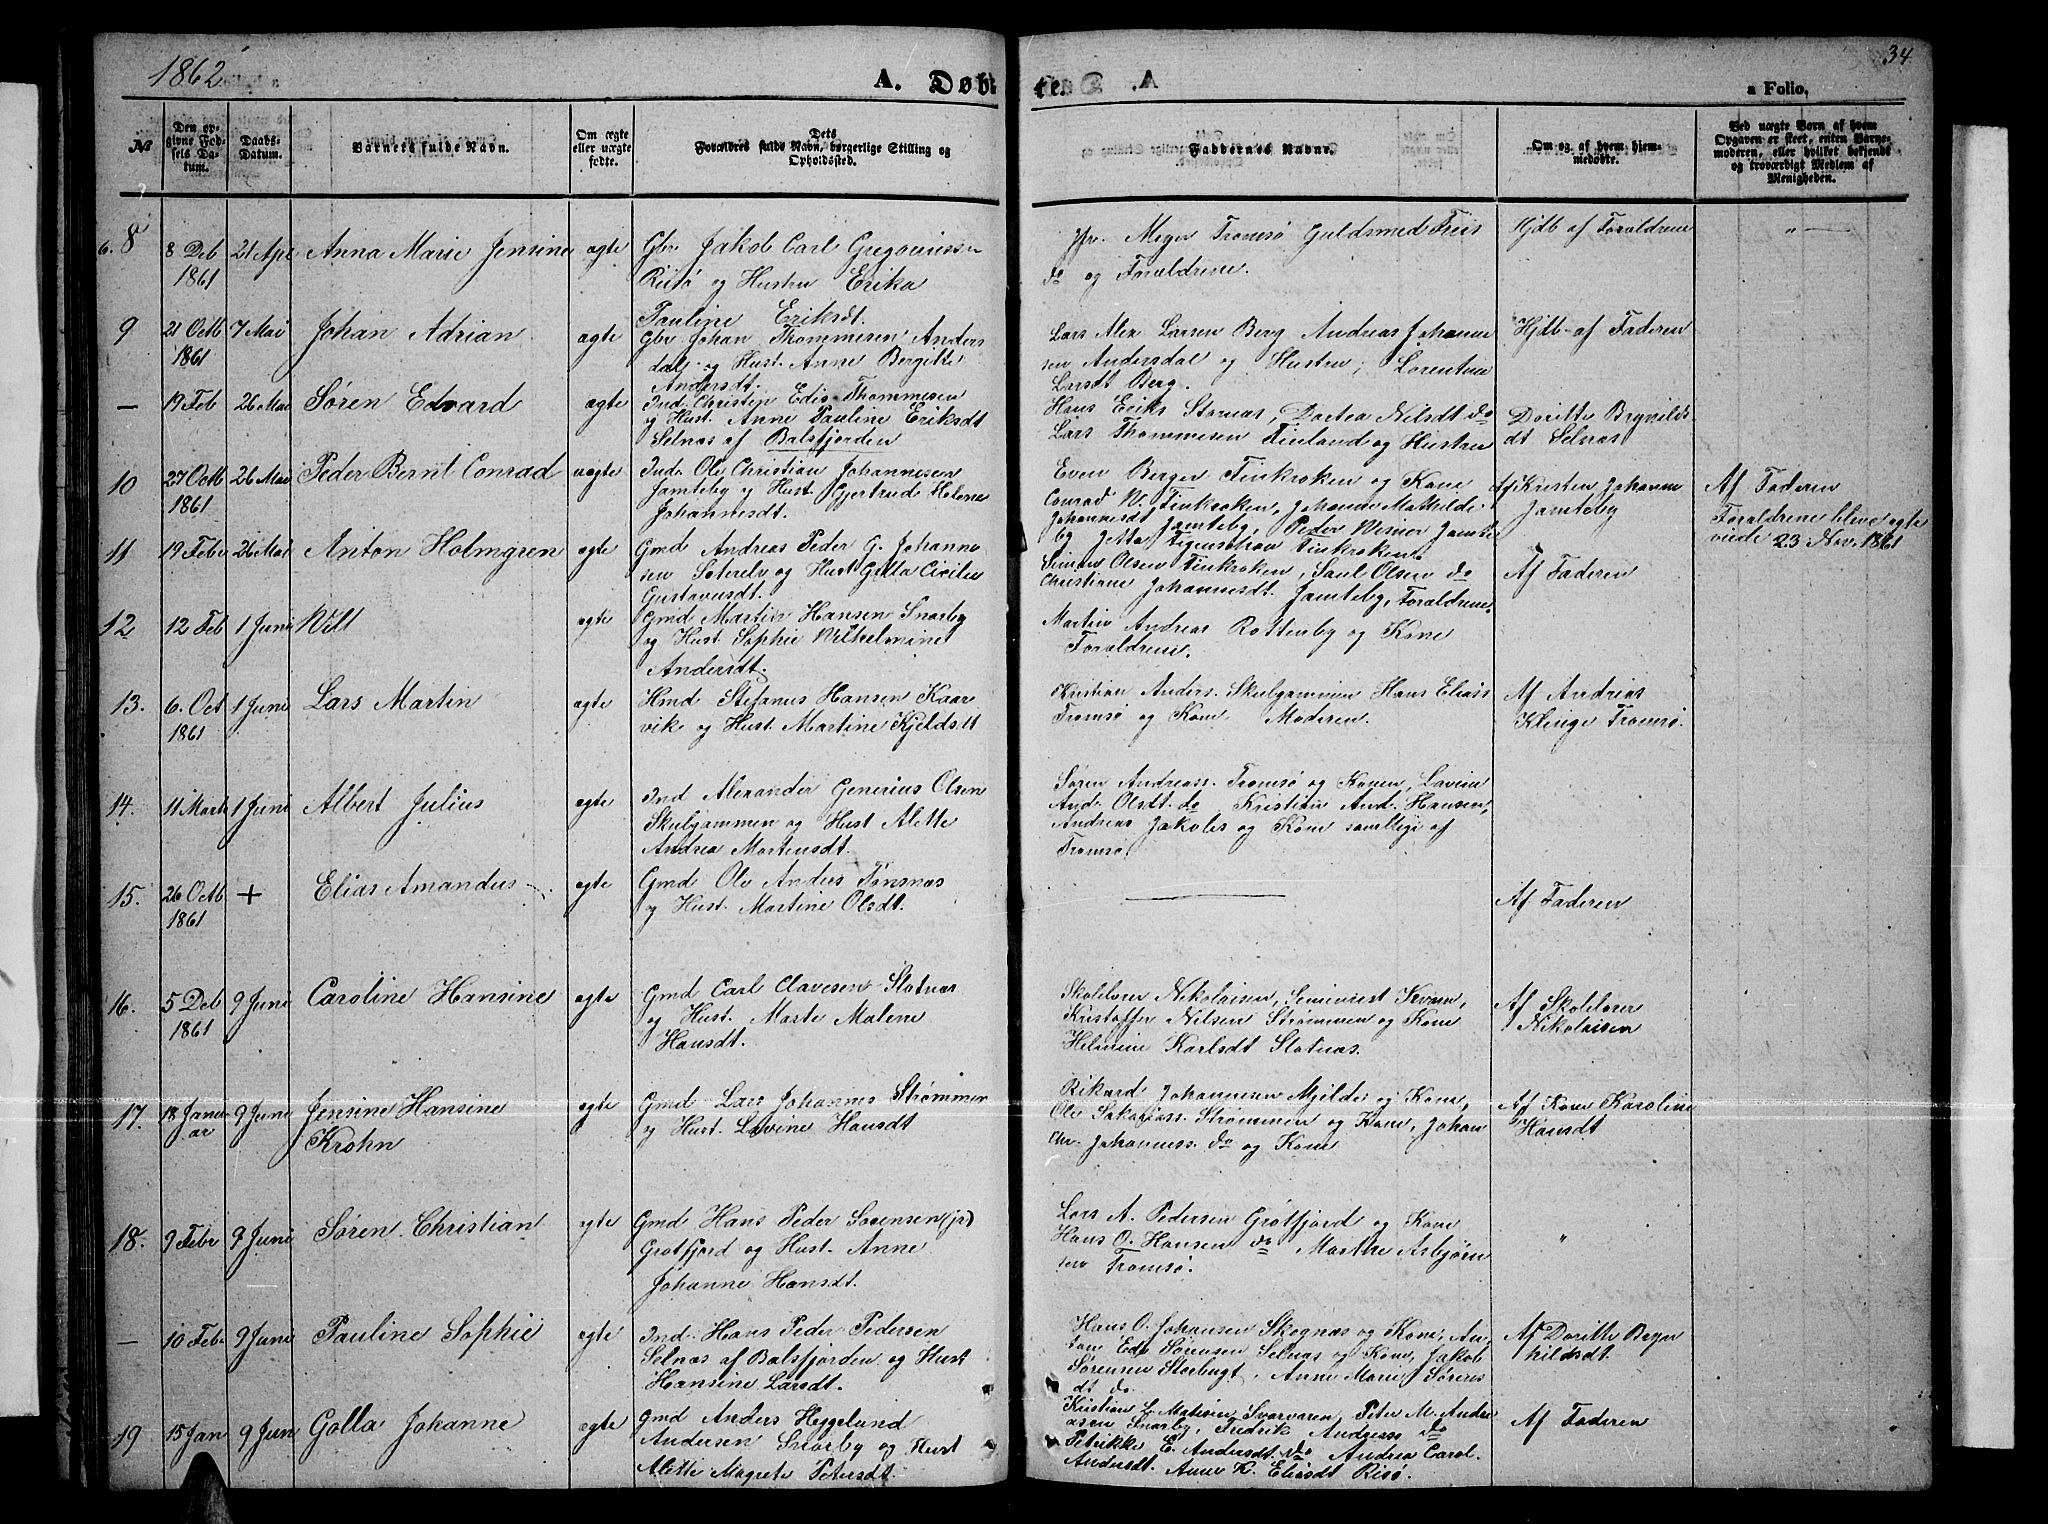 1862
34
A. Døb
te.
a Folio.
№
Den op-
givne Fød-
sels Da-
tum.
Daabs-
Datum.
Barnets fulde Navn.
Om ægte
eller uægte
fødte.
Dets
Forældres fulde Navn, borgerlige Stilling og
Opholdssted.
Faddernes Navne.
Om og af hvem hjem-
medøbte.
Ved uægte Børn af hvem
Opgaven er skeet, enten Barne-
moderen, eller hvilket bekjendt
og troværdigt Medlem af
Menigheden.
8 8 Deb 21 Apr Anna Marie Jensine ægte Gbr Jakob Carl
1861
og Hustru Erika
Pauline Eriksdt.
Meyer Tromsø Guldsmed Friis Hjdb af Forældrene
do og Forældrene.
9 21 Octb 7 Mai Johan Adrian ægte Gbr Johan Thommesen, Anders
1861
dal og Hust. Anne Bergitte
Andersdt.
Lars Alex Larsen Berg Andreas Johanne Hjdb af Faderen
sen Andersdal og Hustru, Lorentine
Larsdt Berg.
— 19 Feb 26 Mai Søren Edvard ægte Ind Christen Edis Thommesen
og Hust. Anne Pauline Eriksdt
Selnæs af Balsfjorden
Hans Eriks Stornæs, Dortea Nilsdt do Doritte Brynilds
Lars Thommesen Finland og Hustru dt Selnæs
10 27 Octb 26 Mai Peder Bernt Conrad uægte Ind. Ole Christian Johannesen
1861
Jamteby og Hust. Gjertrud Helene
Johannesdt.
Even Berger Finkroken og Kone Af Kristen Johannes Af Faderen
Conrad W. Finkroken, Johanne Mathilde Jamteby Forældrene bleve ægte
Johannesdt Jamteby, Peder Werner Jamte viede 23 Nov. 1861
by Jetta Figenschau Finkroken.
11 19 Febr 26 Mai Anton Holmgren ægte Gmd Andreas Peder G. Johanne
sen og Hust Gjetta Cicilie
Gustavusdt.
Simon Olsen Finkroken, Saul Olsen do Af Faderen
Christine Johannesdt. Jamteby, Forældrene.
12 12 Feb 1 Juni Nill ægte Gmd Martin Hansen Snarby
og Hust Sophie Wilhelmine
Andersdt.
Martin Andreas Rottenby og Kone
Forældrene.
13. 6. Oct 1 Juni Lars Martin ægte Hmd Stefanus Hansen Kaar
1861
vik og Hust. Martine Kjeldsdt
Kristian Anders. Skulgammen Hans Eliass Af Andreas
Tromsø og Kone, Moderen. Klinge Tromsø.
14. 11 Marts 1 Juni Albert Julius ægte Ind Alexander Generius Olsen
Skulgammen og Hust Alette
Andrea Martensdt.
Søren Andreass. Tromsø og Konen, Lavine
And. Olsdt. do Kristian And. Hansen,
Andreas Jakobs og Kone samtlige af
Tromsø.
15. 26 Octb + Elias Amandus ægte Gmd Ole Anders Tønsnæs
1861
og Hust. Martine Olsdt.
Af Faderen
16. 5 Deb 9 Juni Caroline Hansine ægte Gmd Carl Clavesen Slotnæs
1861
og Hust. Marte Malene
Hansdt.
Skolelærer Nikolaisen, Seminarist Kræmer, Af Skolelærer
Kristoffer Nilsen Strømmen og Kone Nikolaisen
Helmine Karlsdt Slotnæs.
17. 18 Janu 9 Juni Jensine Hansine ægte Gmd Lars Johannes Strømmen
ar Krohn og Hust. Lavine Hansdt
Rikard Johannesen Mjelde og Kone, Af Kone Karoline
Ole Sakariass. Strømmen og Kone, Johan Hansdt
Chr. Johanness. do og Kone
18. 9 Febr 9 Juni Søren Christian ægte Gmd Hans Peder Sørensen (jr)
Grøtfjord og Hust. Anne
Johanne Hansdt.
Lars A. Pedersen Grøtfjord og Kone
Hans O. Hansen do, Marthe Asbjørn "
sen Tromsø.
— 10 Feb. 9 Juni Pauline Sophie ægte Ind. Hans Peder Pedersen
Selnæs af Balsfjorden og Hust
Hansine Larsdt.
Hans O. Johansen Skognæs og Kone, An Af Doritte Bryn
ton Edv Sørensen Selnæs og Kone, Jakob hildsdt.
Sørensen Storbugt, Anne Marie Sørens
dt do
19 15 Jan 9 Jun Golla Johanne ægte Gmd Anders Heggelund
Andersen Snarby og Hust
Alette Magrete Petersdt.
Kristian L. Matisen Svarvaren, Peter M. Andre Af Faderen
asen Snarby, Fredrik Andreass do
Petrikke E. Andersdt do Andrea Carol.
Andersdt. Anne K. Eliasdt Risø.